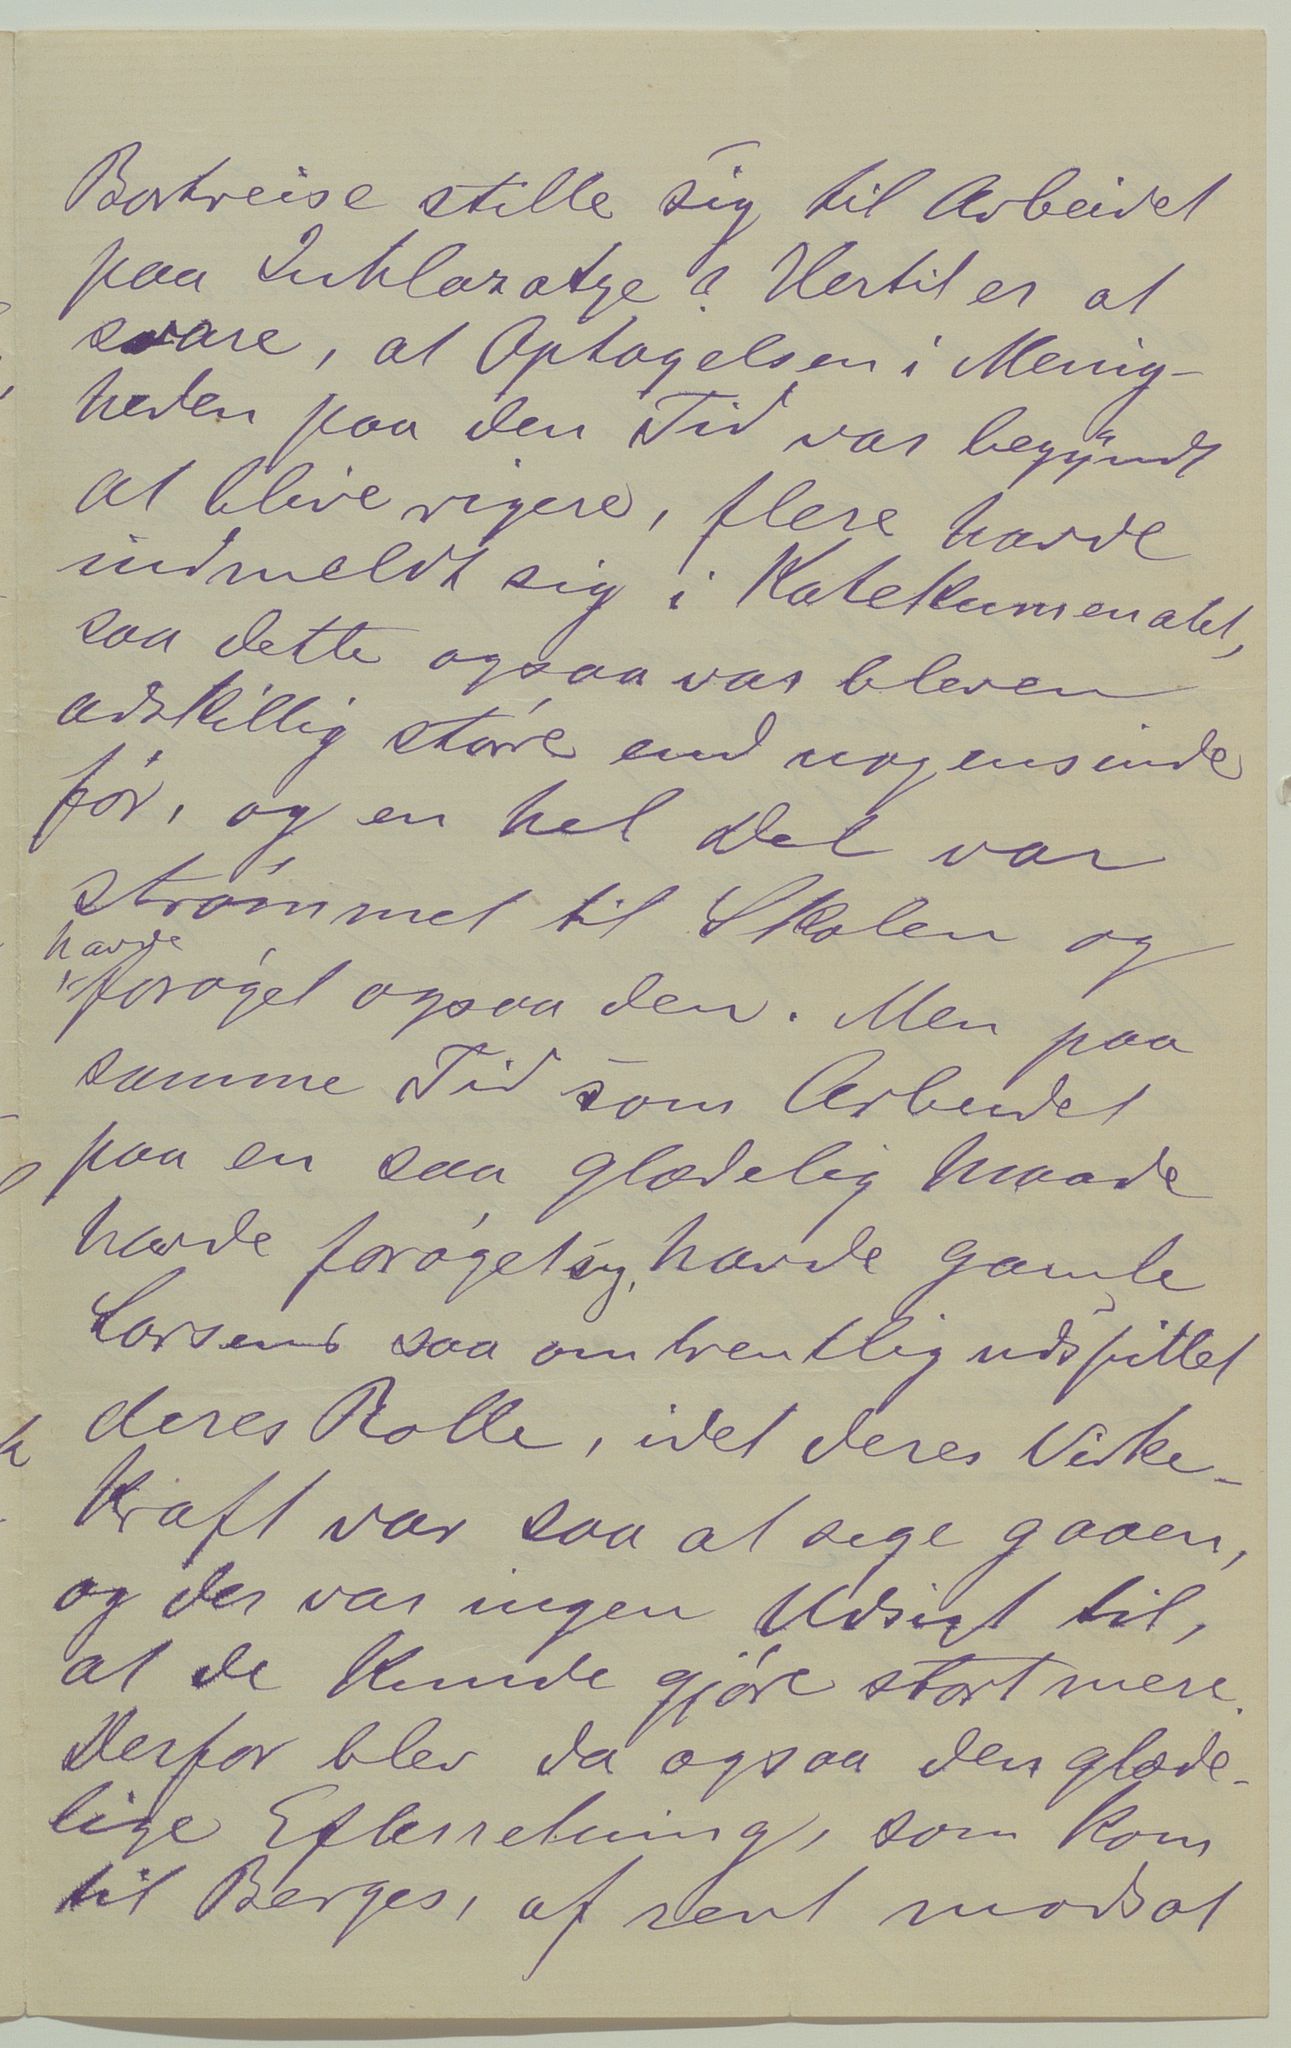 Bortreise stille sig til Arbeidet
paa Inhlazatye? Hertil er at
svare, at Optagelsen i Menig-
heden paa den Tid var begyndt
at blive rigere, flere havde
indmeldt sig i Katekumenatet,
saa dette ogsaa var bleven
adskillig større end nogensinde
før, og en hel Del var
strømmet til Skolen og
havde
forøget ogsaa den. Men paa
samme Tid som Arbeidet
paa en saa glædelig Maade
havde forøget sig, havde gamle
Larsens saa omtrentlig udspillet
deres Rolle, idet deres Virke-
kraft var saa at sige gaaen,
og der var ingen Udsigt til,
at de kunde gjøre stort mere.
Derfor blev da ogsaa den glæde-
lige Efterretning, som kom
til Berges, af rent modsat